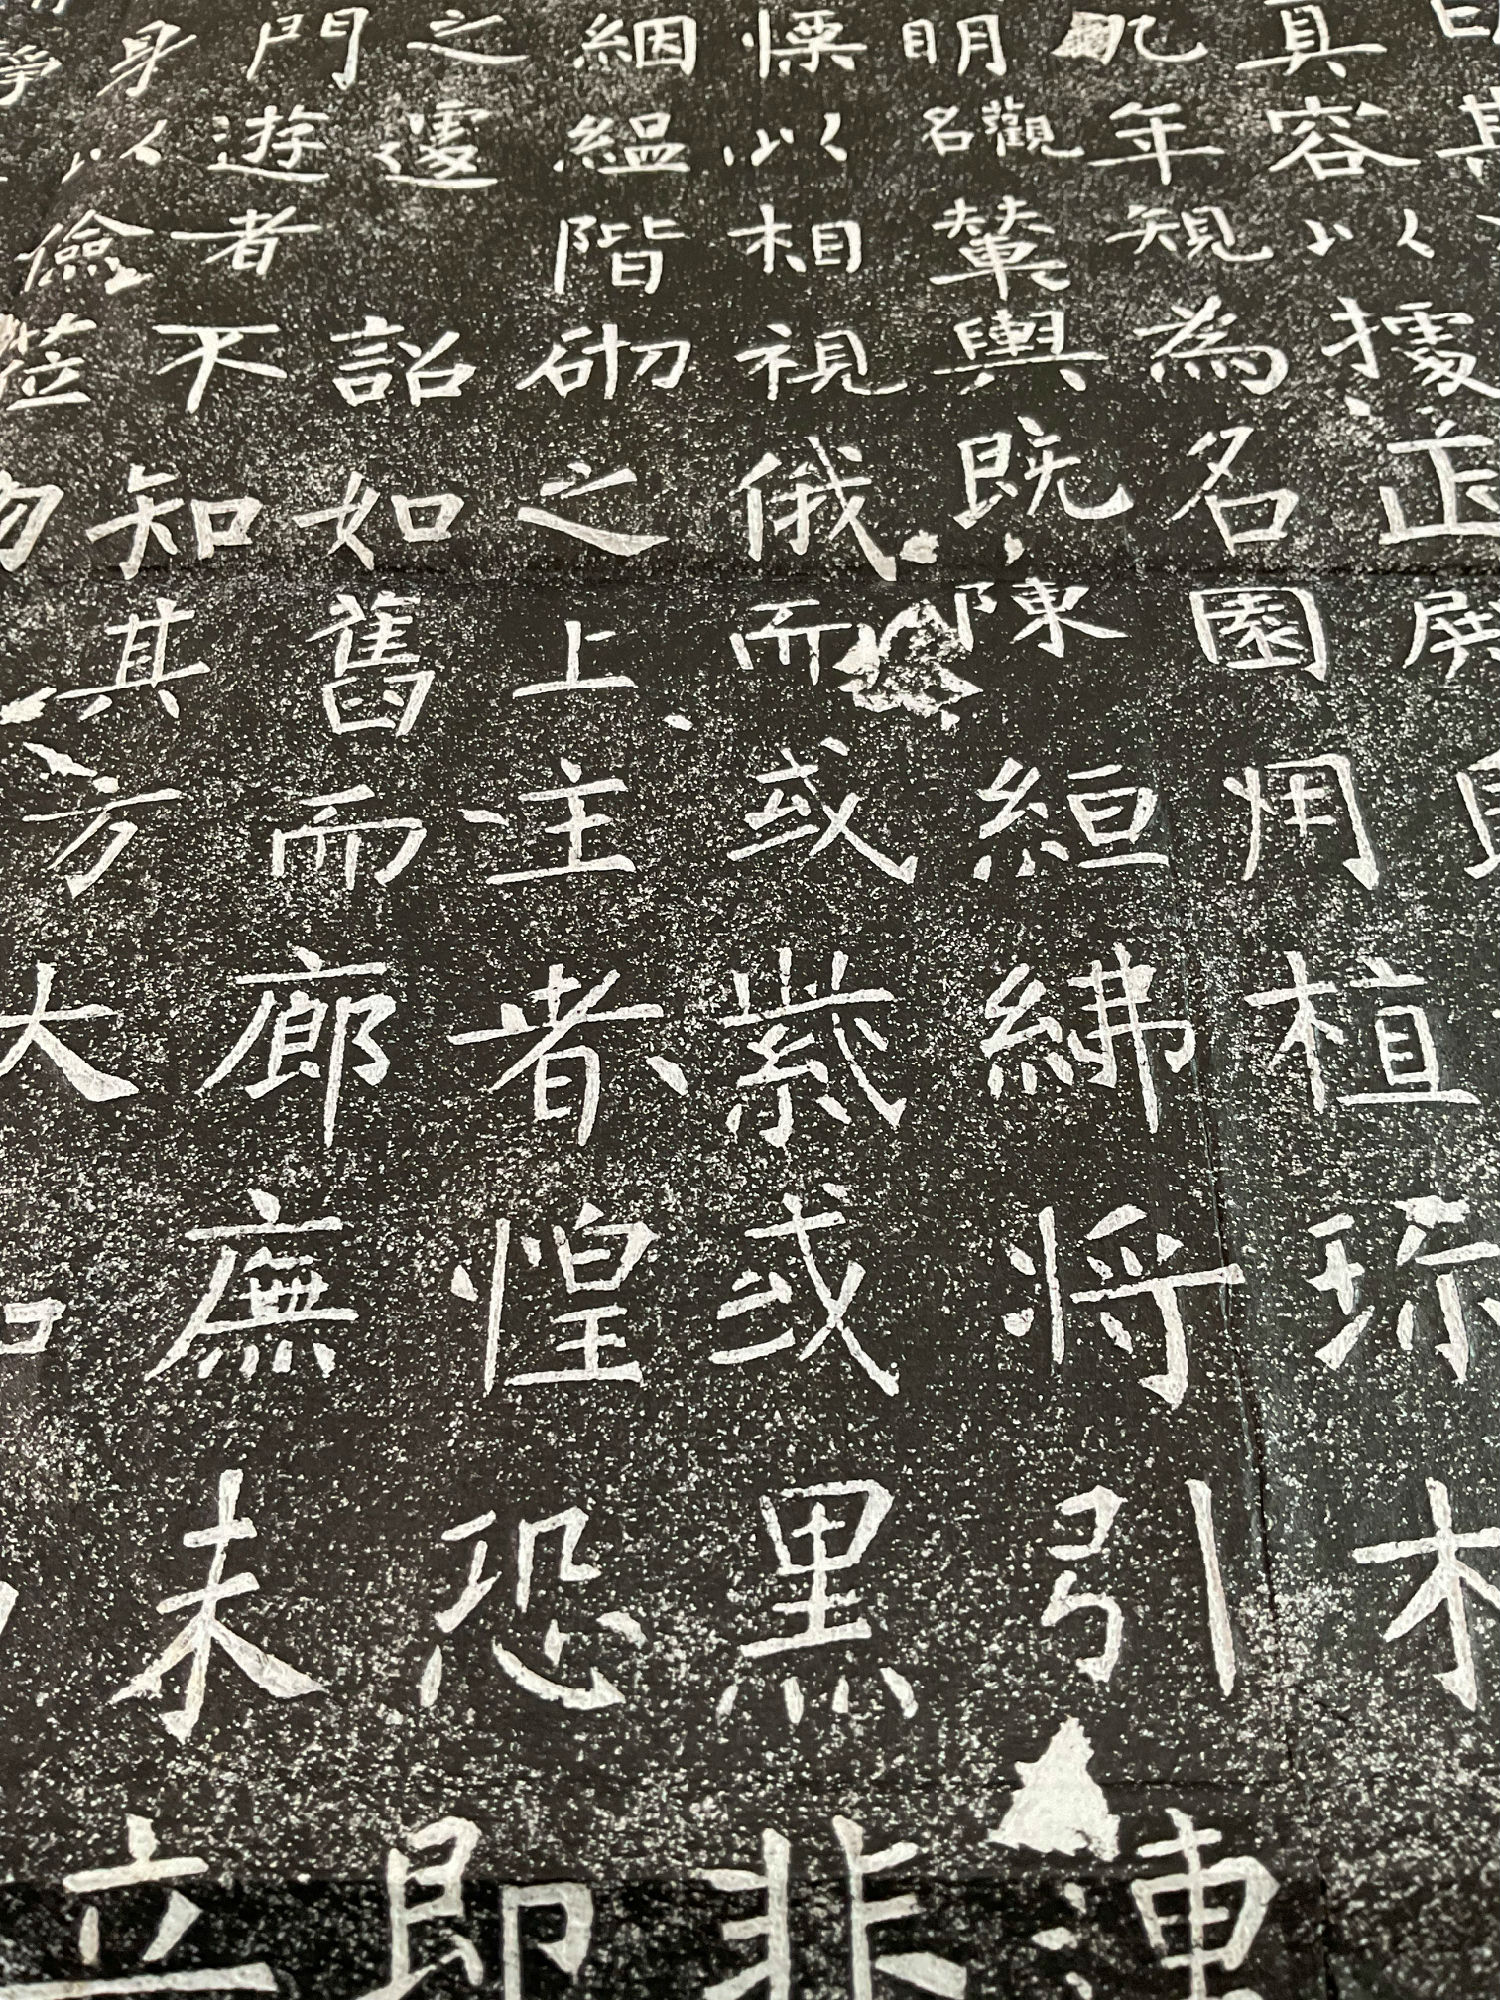 真容以據正展
年規為名園用植珎木
明觀名輦輿既陳絙紼将引連
慄以相視俄而或紫或黑非
絪緼階砌之上主者惶恐即
之遽詔如舊而廊廡未立
門遊者不知其方大
身以儉莅物